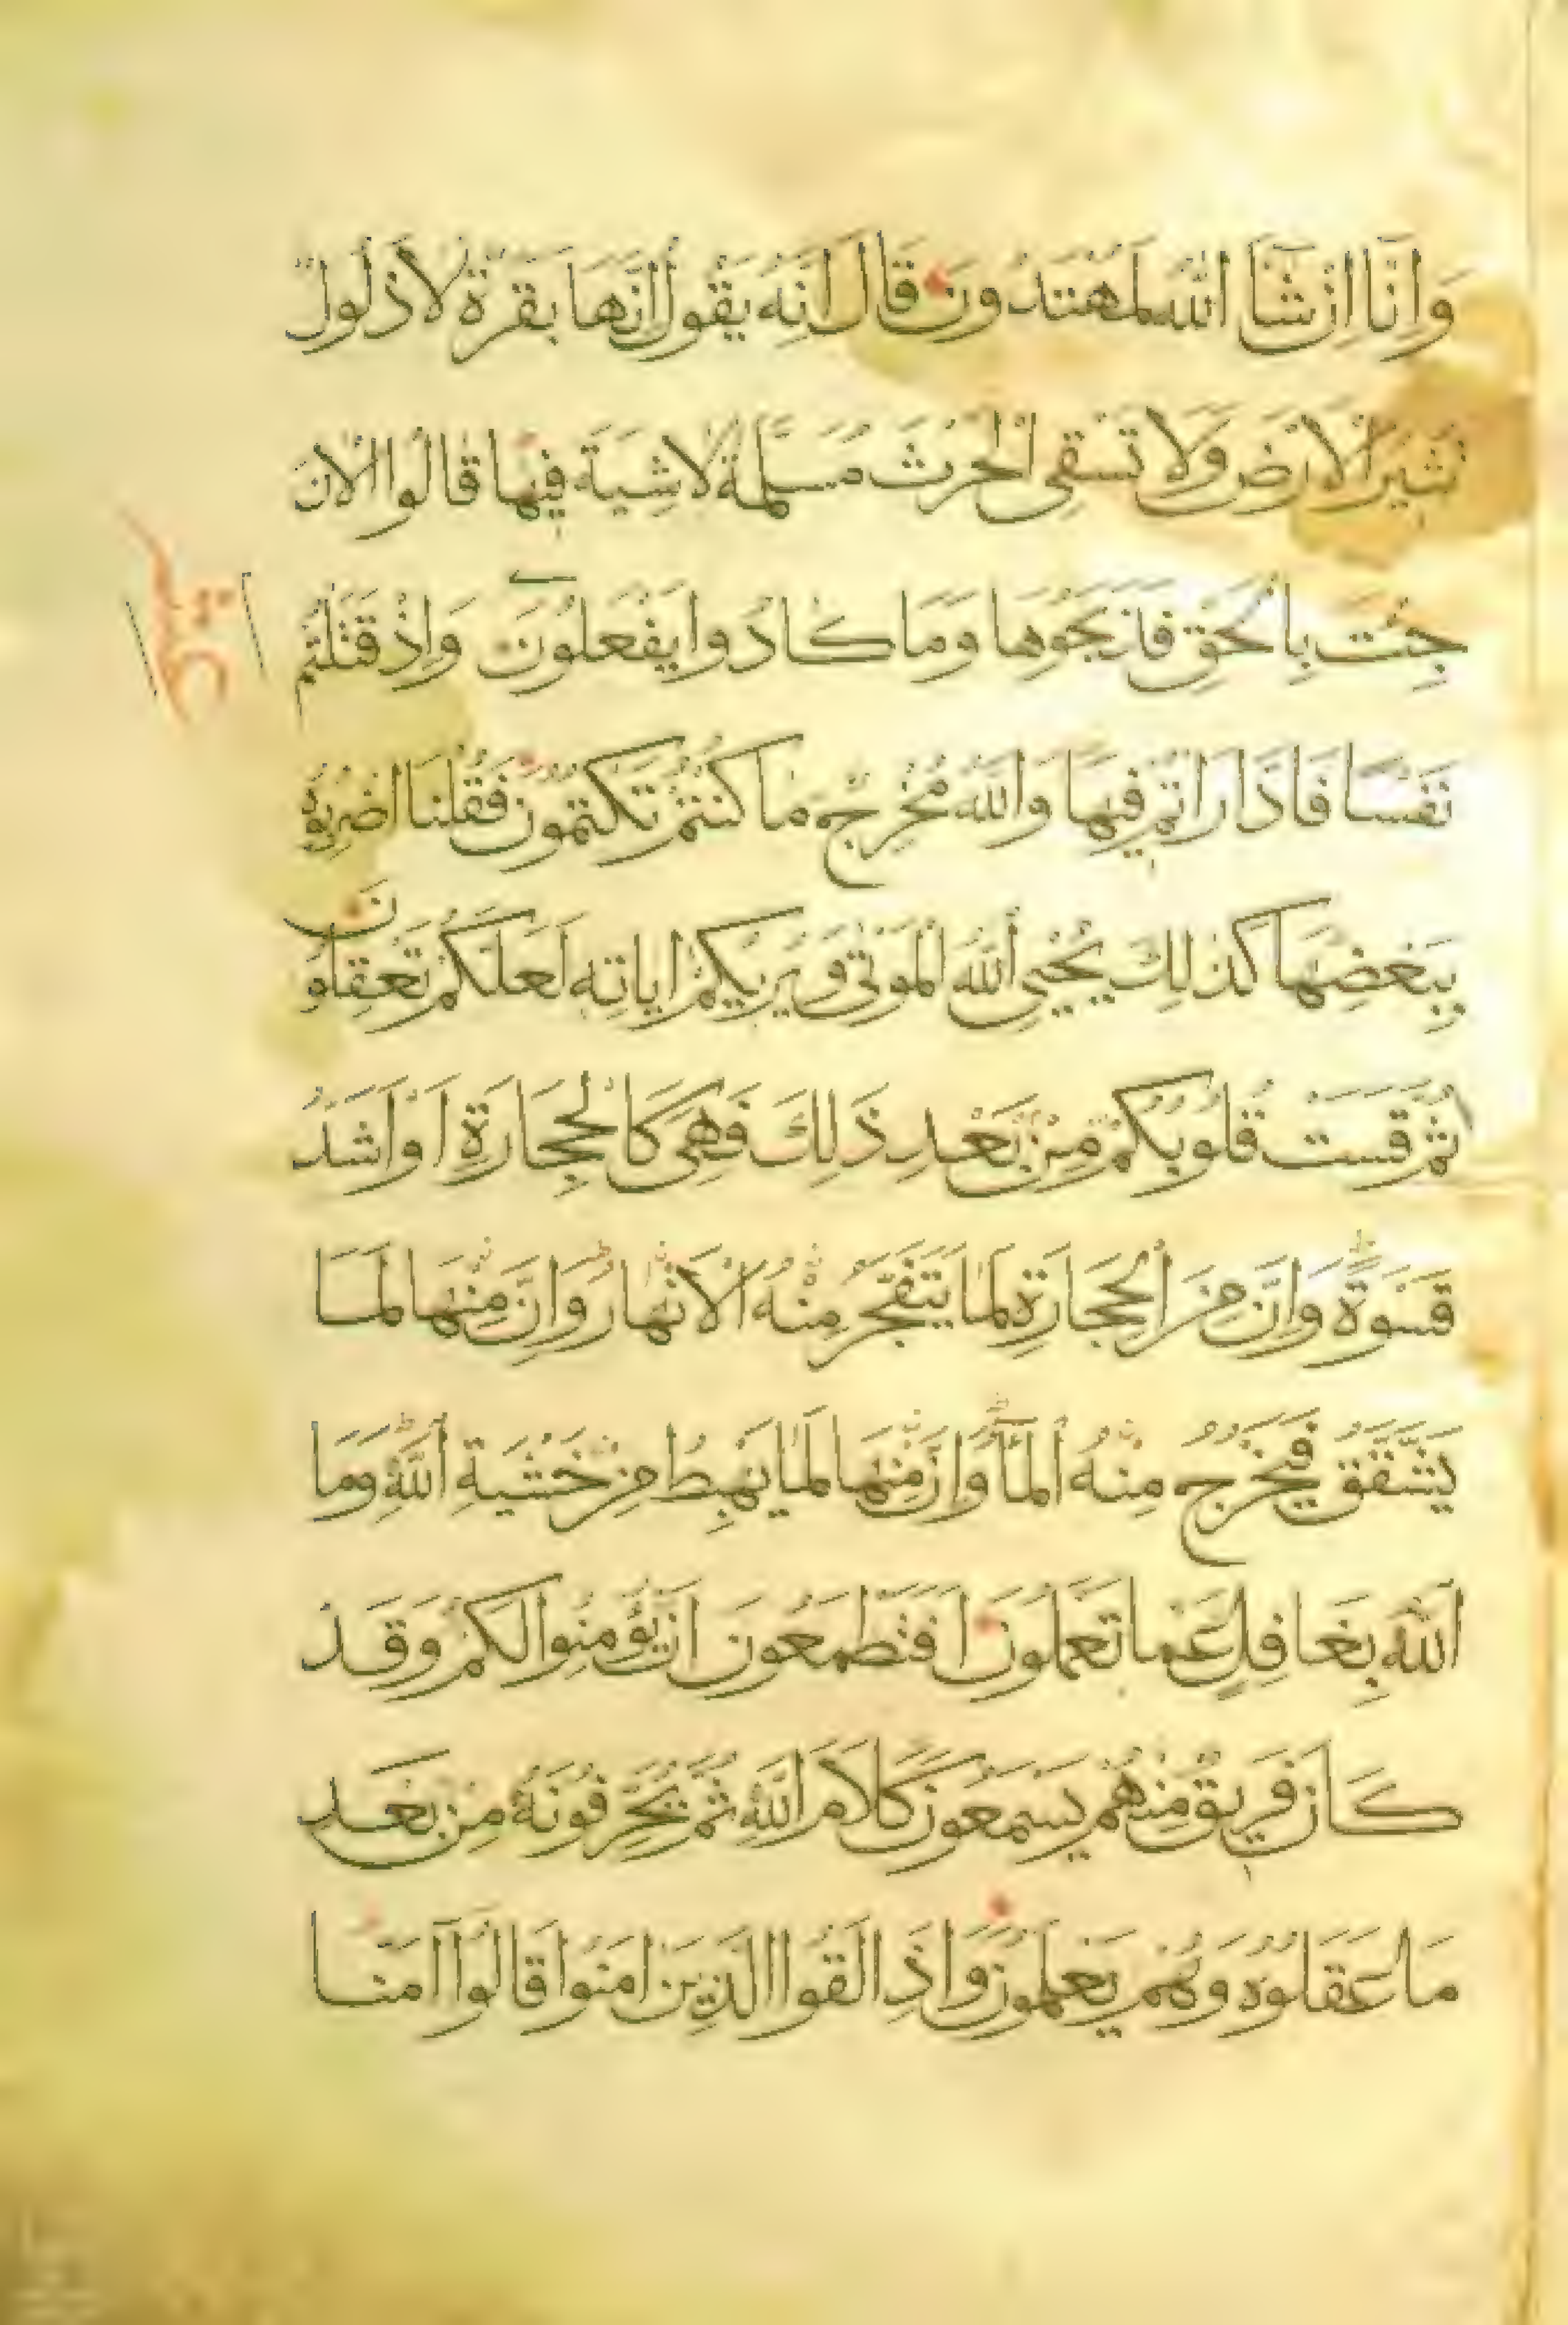 وَاِنَّا اِنْ شَآ اللهُ لَمُهْتَدُونَ قَالَ اِنَّهُ يَقُولُ اِنَّهَا بَقَرَةٌ لَا ذَلُولٌ
تُثِيرُ الْاَرْضَ وَلَا تَسْقِى الْحَرْثَ مُسَلَّمَةٌ لَا شِيَةَ فِيهَا قَالُوا الْاٰنَ
جِئْتَ بِالْحَقِّ فَذَبَحُوهَا وَمَا كَادُوا يَفْعَلُونَ وَاِذْ قَتَلْتُمْ
نَفْسًا فَادَّارَاْتُمْ فِيهَا وَاللهُ مُخْرِجٌ مَا كُنْتُمْ تَكْتُمُونَ فَقُلْنَا اضْرِبُوهُ
بِبَعْضِهَا كَذٰلِكَ يُحْيِى اللهُ الْمَوْتٰى وَيُرِيكُمْ اٰيَاتِهِ لَعَلَّكُمْ تَعْقِلُونَ
ثُمَّ قَسَتْ قُلُوبُكُمْ مِنْ بَعْدِ ذٰلِكَ فَهِىَ كَالْحِجَارَةِ اَوْ اَشَدُّ
قَسْوَةً وَاِنَّ مِنَ الْحِجَارَةِ لَمَا يَتَفَجَّرُ مِنْهُ الْاَنْهَارُ وَاِنَّ مِنْهَا لَمَا
يَشَّقَّقُ فَيَخْرُجُ مِنْهُ الْمَآ وَاِنَّ مِنْهَا لَمَا يَهْبِطُ مِنْ خَشْيَةِ اللهِ وَمَا
اللهُ بِغَافِلٍ عَمَّا تَعْمَلُونَ اَفَتَطْمَعُونَ اَنْ يُؤْمِنُوا لَكُمْ وَقَدْ
كَانَ فَرِيقٌ مِنْهُمْ يَسْمَعُونَ كَلَامَ اللهِ ثُمَّ يُحَرِّفُونَهُ مِنْ بَعْدِ
مَا عَقَلُوهُ وَهُمْ يَعْلَمُونَ وَاِذَا لَقُوا الَّذِينَ اٰمَنُوا قَالُوا اٰمَنَّا